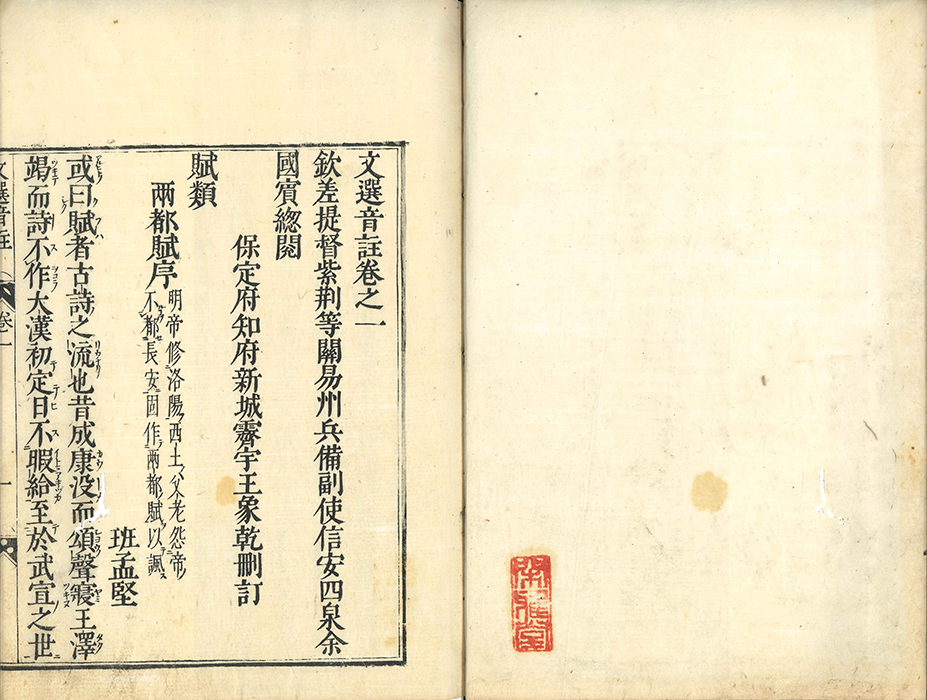 文選音註卷之一
欽差提督紫荆等關易州兵備副使信安四泉余
國賓總閱
保定府知府新城霽宇王象乾刪訂
賦類
兩都賦序
明帝修洛陽西土父老怨帝
不都長安固作兩都賦以諷
班孟堅
或曰賦者古詩之流也昔成康没而頌聲寢王澤
竭而詩不作大漢初定日不暇給至於武宣之世
文選音註
卷一
一